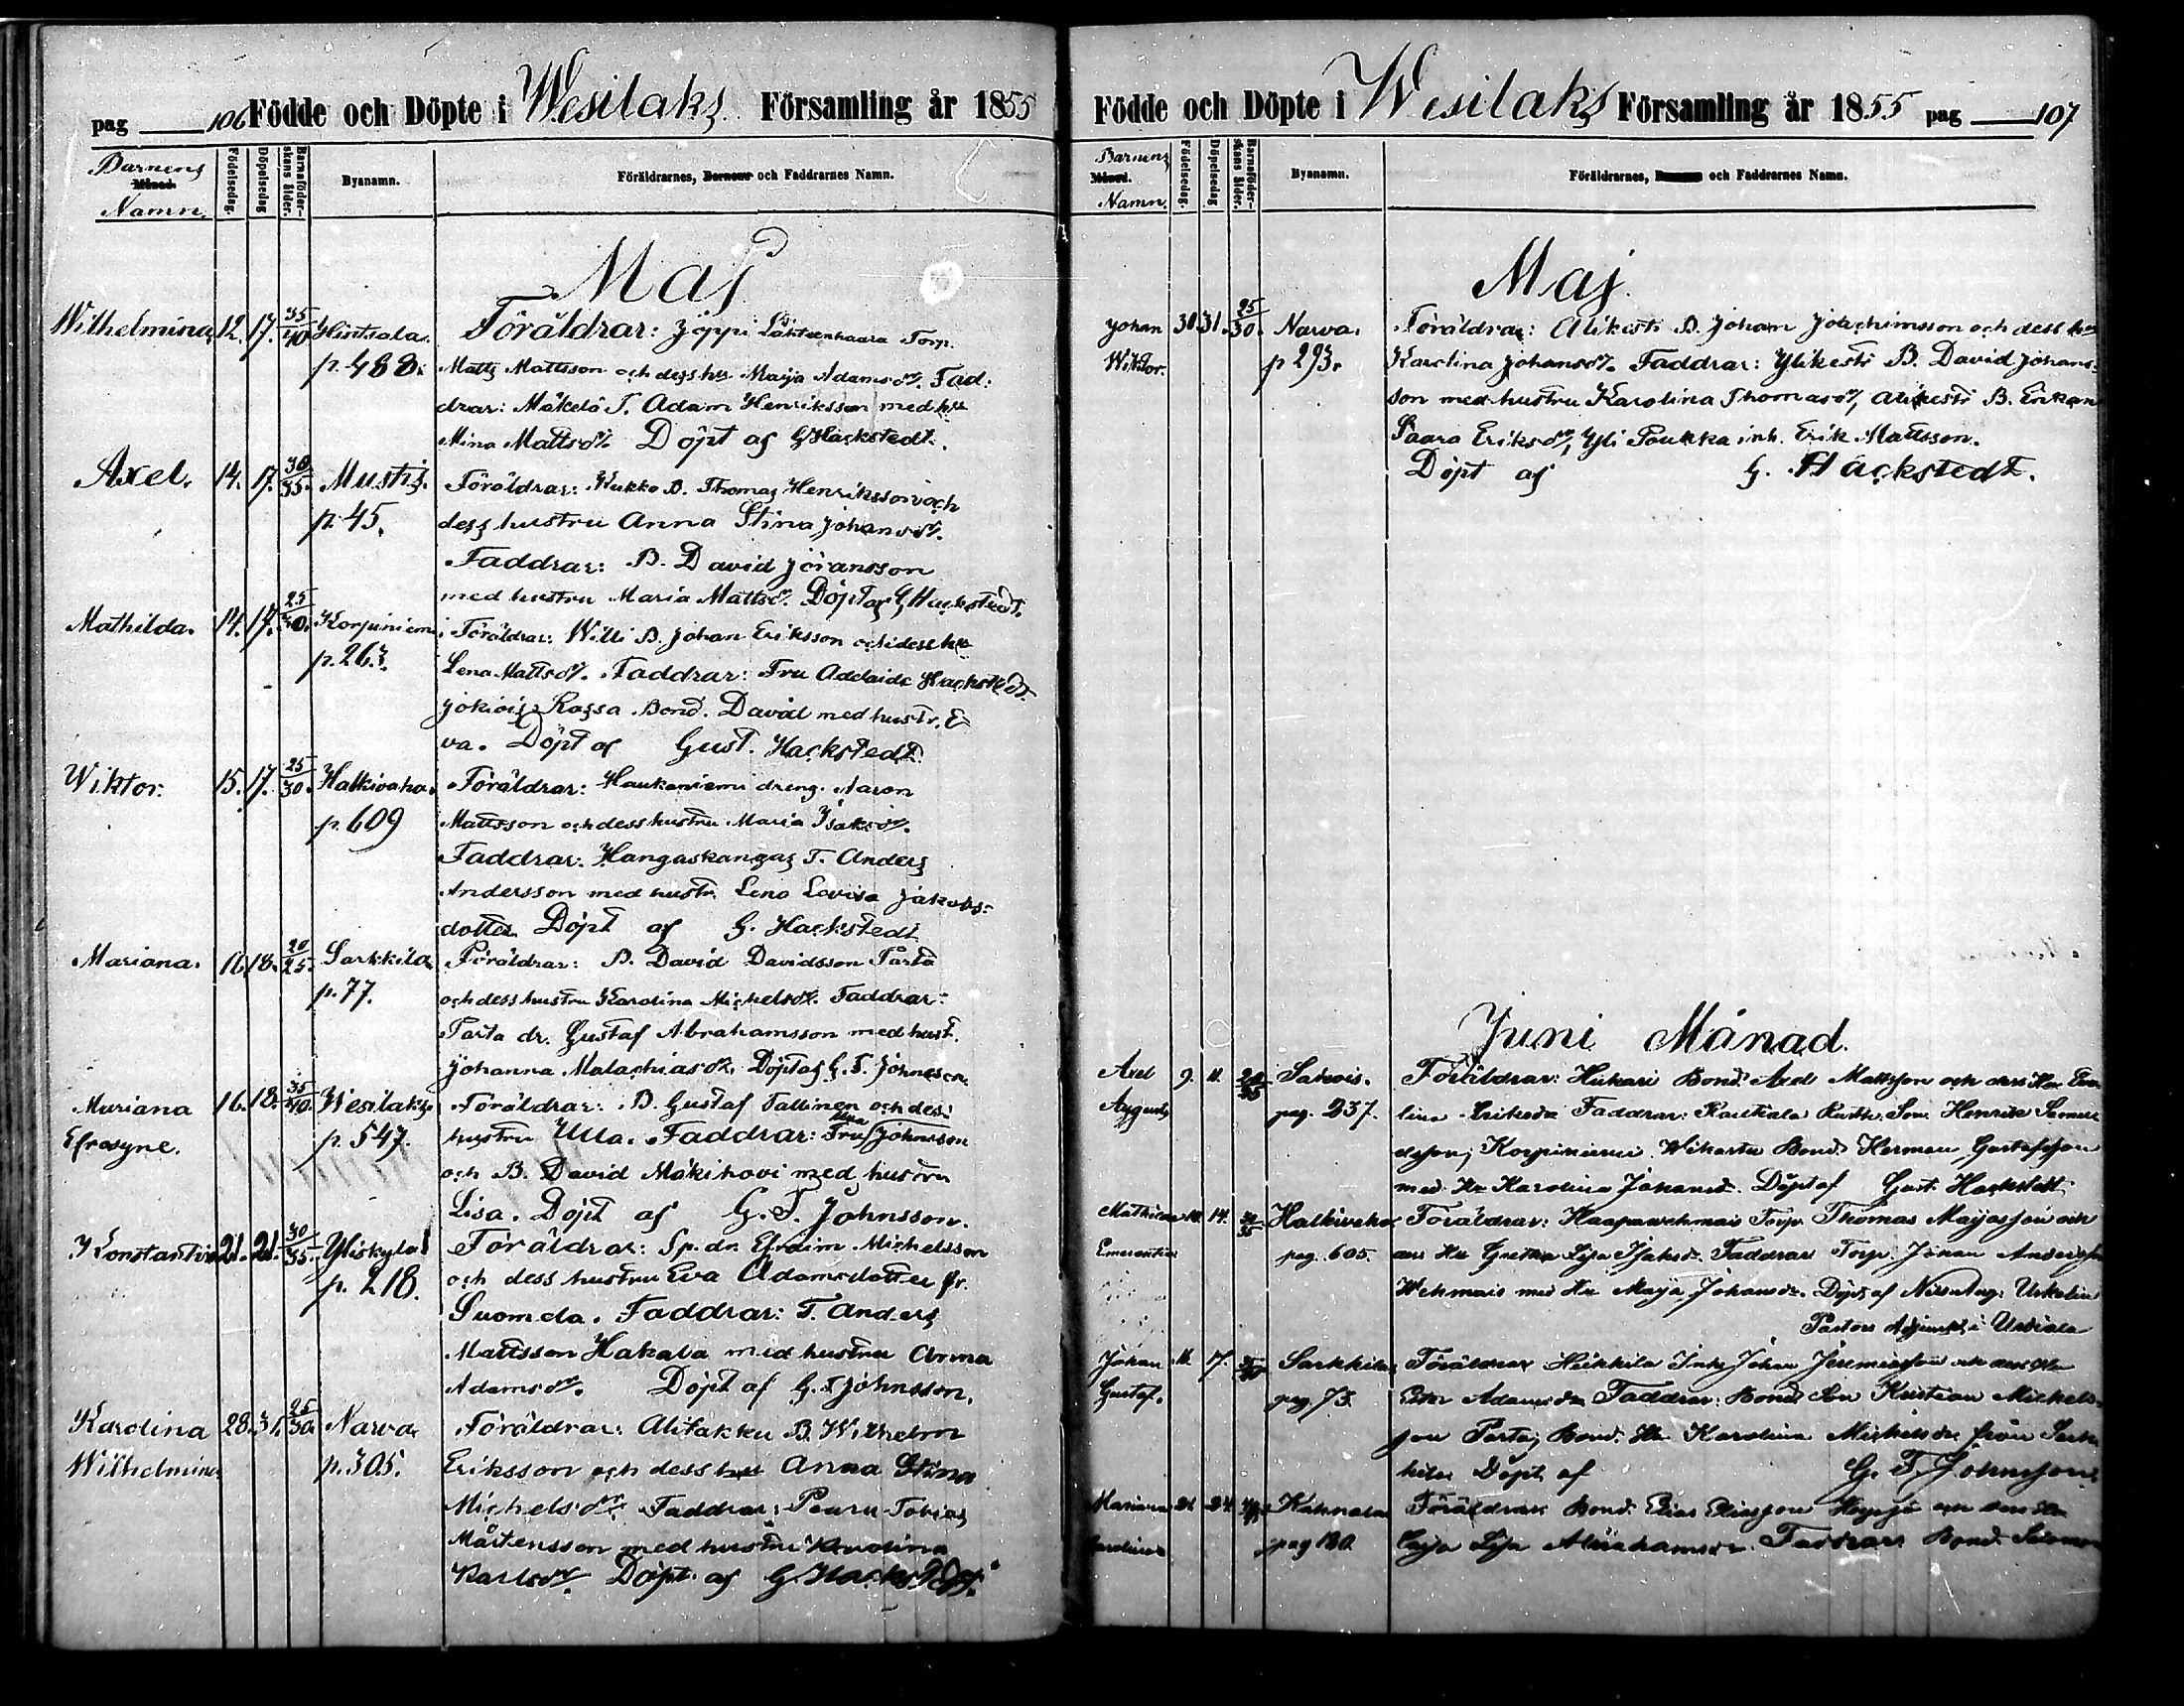 pag 106 Födde och Döpte i Wesilaks Församling år 1855
Barnens
Månad.
Namn.
Födelsedag.
Döpelsedag
Barnaföder-
skans ålder.
Byanamn.
Föräldrarnes, Barnens och Faddrarnes Namn.
Maj
Wilhelmina 12. 17. 35/40 Hintsala. Föräldrar: Jöppi Lähteenhaara Torp.
p. 488. Matts Mattsson och dess hu Maija Adamsdr. Fad:
drar: Mäkelä T. Adam Henriksson med hu
Mina Mattsdr. Döpt af G Hackstedt.
Axel. 14. 17. 30/35. Mustis. Föräldrar: Kukko B. Thomas Henriksson och
p. 45. dess hustru Anna Stina Johansdr.
Faddrar: B. David Jöransson
med hustru Maria Mattsdr. Döpt af G Hackstedt.
Mathilda. 14. 17. 25/30. Korpiniemi. Föräldrar: Willi B. Johan Eriksson och dess hu
p. 263. Lena Mattsdr. Faddrar: Fru Adelaide Hackstedt
Jokiois Rossa Bond. David med hustr. E-
va. Döpt af Gust. Hackstedt
Wiktor. 15. 17. 25/30. Halkivaha. Föräldrar: Haukaniemi dreng. Aaron
p. 609 Mattsson och dess hustru Maria Isaksdr.
Faddrar: Hangaskangas T. Anders
Andersson med hustr. Lena Lovisa Jakobs-
dotter Döpt af G. Hackstedt
Mariana. 16. 18. 20/25. Sarkkila Föräldrar: B. David Davidsson Parta
p. 77. och dess hustru Karolina Michelsdr. Faddrar:
Parta dr. Gustaf Abrahamsson med hust.
Johanna Malachiasdr. Döpt af G. T. Johnsson.
Mariana 16. 18. 35/40. Wesilaks. Föräldrar: B. Gustaf Tallinen och des:
Efrosyne. p. 547. hustru Ulla. Faddrar: Fru Johnsson
och B. David Mäkihovi med hustru
Lisa. Döpt af G. T. Johnsson.
Konstantin 21. 21. 30/35. Yliskylä Föräldrar: Sp. dr. Efraim Michelsson
p. 218. och dess hustru Eva Adamsdotter fr.
Suomela. Faddrar: T. Anders
Mattsson Hakala med hustru Anna
Adamsdr. Döpt af G. T Johnsson.
Karolina 28. 31. 25/30. Narva. Föräldrar: Alitakku B. Wilhelm
Wilhelmina p. 305. Eriksson och dess hu Anna Stina
Michelsdr. Faddrar: Pouru Tobias
Mårtensson med hustru Karolina
Karlsdr. Döpt af G. Hackstedt.
Födde och Döpte i Wesilaks Församling år 1855 pag 107
Barnens
Månad.
Namn.
Födelsedag.
Döpelsedag
Barnaföder-
skans ålder.
Byanamn.
Föräldrarnes, Barnens och Faddrarnes Namn.
Maj.
Johan 30. 31. 25/30. Narva. Föräldrar: Alikesti B. Johan Joachimsson och dess hu
Wiktor. p 293. Karolina Johansdr. Faddrar: Ylikesti B. David Johans-
son med hustru Karolina Thomasdr, Alikesti B. Enkan
Saara Eriksdr, Yli Poukka inh. Erik Mattsson.
Döpt af G. Hackstedt.
Juni Månad.
Axel 9. 11. Sakois. Föräldrar: Hukari Bond. Axel Mattsson och dess Hu
Augusts pag. 237. Eriksdr Faddrar: Son Henrik
Korpiniemi Wikartu Bond. Herman Gustafsson
med Hu Karolina Johansd. Döpt af Gust. Hackstedt
Mathilda 10. 14. 30/35 Halkivaha Föräldrar: Haapawehmais Torp. Thomas Mayasson och
Emerentia pag. 605. dess Hu Gretha Lisa Isaksdr. Faddrar Torp. Johan Andersson
Wehmais med Hu Maija Johansdr. Döpt af Nils Aug:
Pastors Adjunkt i Urdiala
Johan 11. 17. Sarkkila Föräldrar Heikkilä Inh. Johan Jeremiasson och dess Hu
Gustaf. pag. 73. Adamsdr Faddrar: Bond. Son Kristian Mickels-
son Parta, Bond. Hu Karolina Michelsdr från Sark-
kila Döpt af G. T. Johnsson
Mariana 21. 24. Kahnala Föräldrar Bond. Elias Eliasson och dess Hu
Carolina pag 180. Caja Lisa Abrahamsdr. Faddrar Bond. Salomon